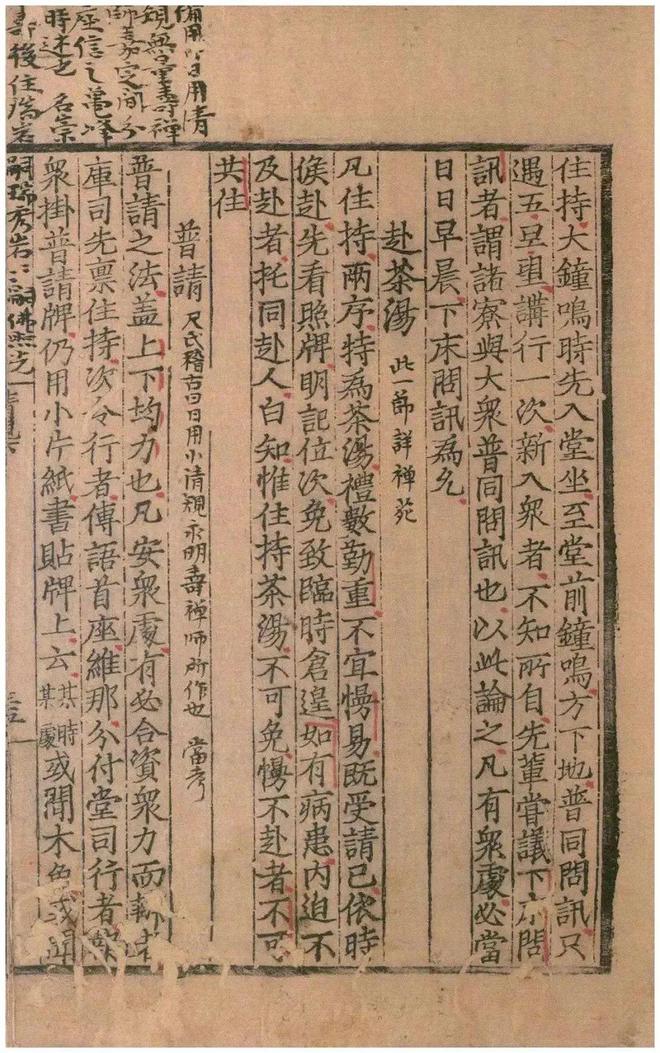 備用曰日用清
規無量壽禅
師嘉定間分
座信之龜峰
時述也 名宗
壽後住瑞岩嗣瑞秀岩〻嗣佛照光
住持大鐘鳴時先入堂坐至堂前鐘鳴方下地普同問訊只
遇五旦更講行一次新入衆者不知所自先輩嘗議下床問
訊者謂諸寮與大衆普同問訊也以此論之凡有衆處必當
日日早晨下床問訊爲允
赴茶湯 此一節詳禅苑
凡住持兩序特爲茶湯禮數勤重不宜慢易既受請已依時
候赴先看照牌明記位次免致臨時倉遑如有病患内迫不
及赴者托同赴人白知惟住持茶湯不可免慢不赴者不可
共住
普請 尺氏稽古曰日用小清規永明壽禅師所作也 當考
普請之法蓋上下均力也凡安衆處有必合資衆力而辦
庫司先禀住持次令行者傳語首座維那分付堂司行者報
衆掛普請牌仍用小片紙書貼牌上云某時某處或聞木魚或聞